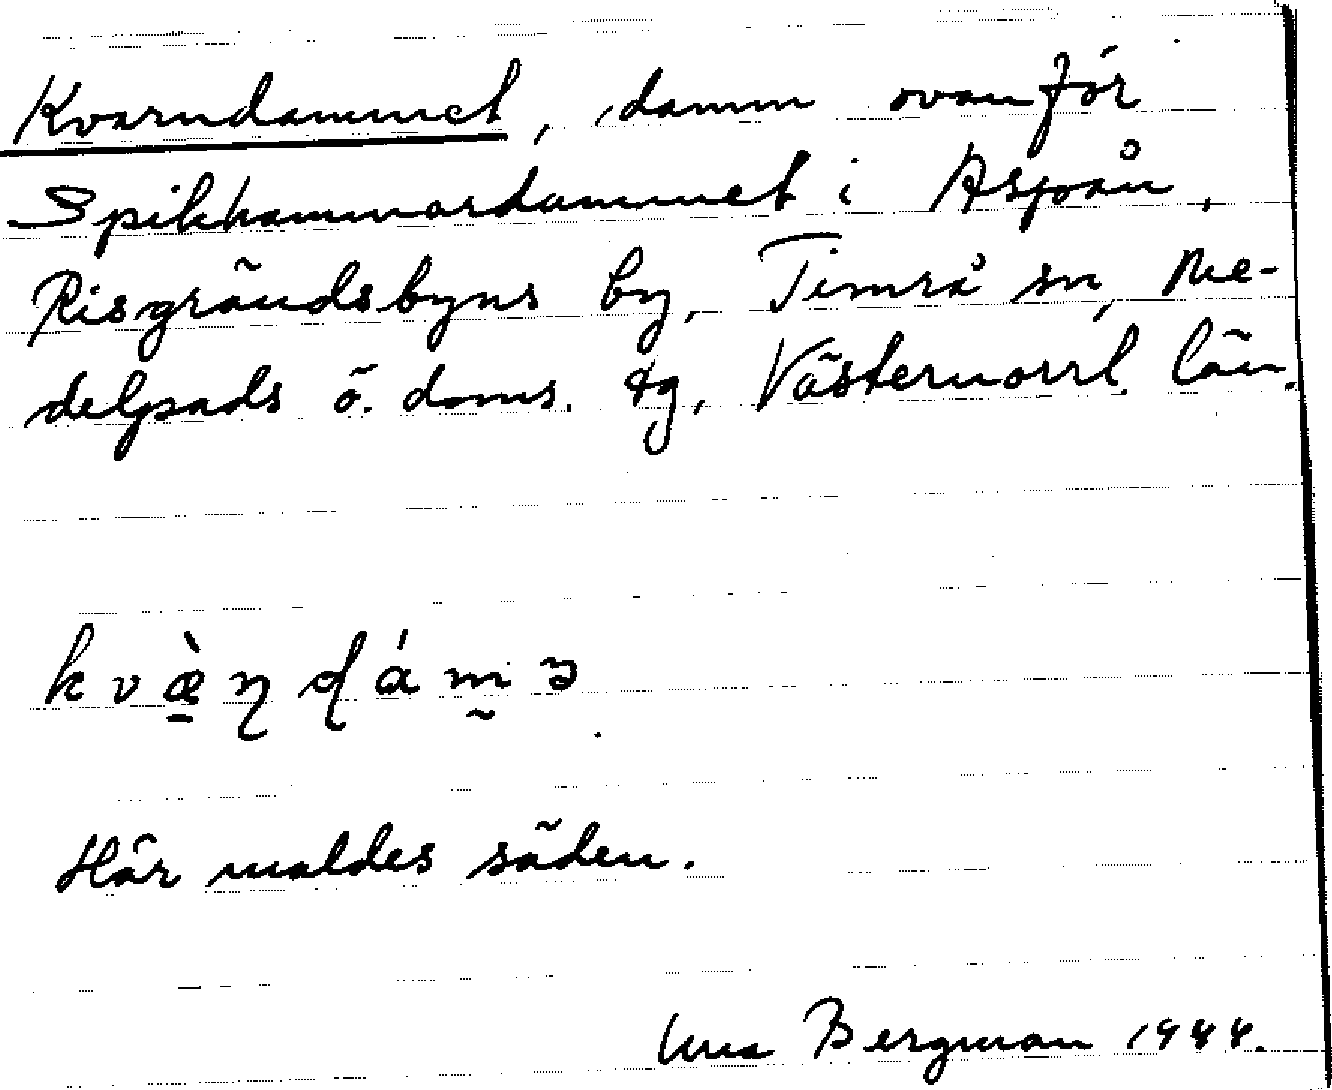 Kvarndammet, damm ovanför
Spikhammardammet i Aspån,
Risgrändsbyns by, Timrå sn, Me-
delpads ö. doms. tg, Västernorrl. län.
kvæ̀ɳɖámə
Här maldes säden.
Una Bergman 1944.